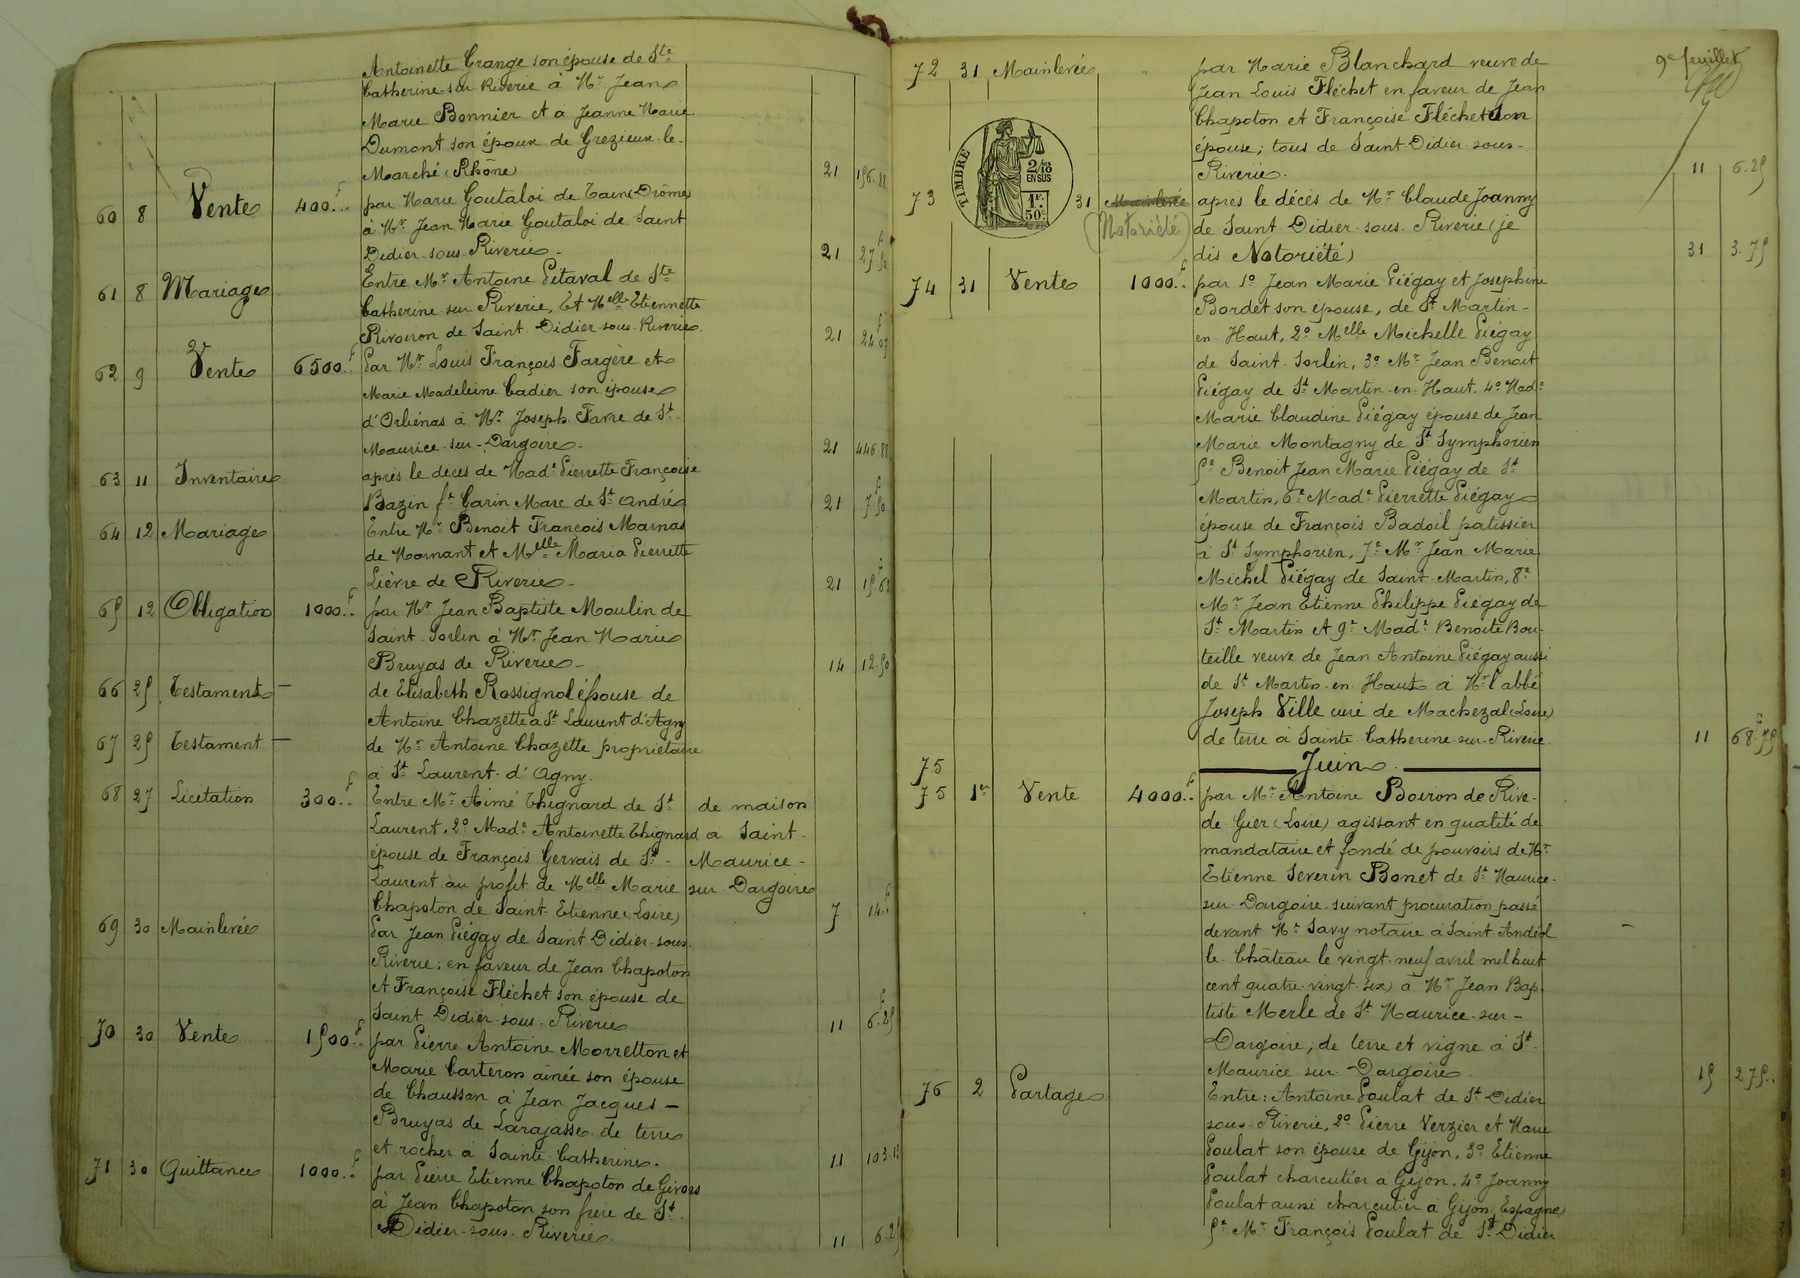 Antoinette Grange son épouse de Ste
Catherine sur Riverie à Mr Jean
Marie Bonnier et à Jeanne Marie
Dumont son époux de Grezieux-le-
Marché (Rhône) 21 196.88
60 8 Vente 400.. f par Marie Goutaloi de Tain-Drôme
à Mr Jean Marie Goutaloi de Saint
Didier-sous-Riverie. 21 27.50
61 8 Mariage Entre Mr Antoine Pitaval de Ste
Catherine-sur Riverie, Et Melle Etiennette
Rivoiron de Saint-Didier-sous-Riverie. 21 24.07
62 9 Vente 6500.. f Par Mr Louis François Fargère et
Marie Madeleine Cadier son épouse
d'Orliénas à Mr Joseph Favre de St
Maurice-sur-Dargoire. 21 446.88
63 11 Inventaire après le décès de Made Pierrette Françoise
Bazin fe Garin Marc de St André 21 7.50
64 12 Mariage Entre Mr Benoit François Marnas
de Mornant et Melle Maria Pierrette
Lièvre de Riverie. 21 15.63
65 12 Obligation 1000.. f par Mr Jean Baptiste Moulin de
Saint-Sorlin à Mr Jean Marie
Bruyas de Riverie 14 12.50
66 25 Testament – de Elisabeth Rossignol épouse de
Antoine Chazette à St Laurent d'Agny
67 25 Testament – de Mr Antoine Chazette propriétaire
à St Laurent-d'Agny.
68 27 Licitation 300.. f Entre Mr Aimé Thignard de St de maison
Laurent, 2o Made Antoinette Thignard à Saint-
épouse de François Gervais de St- Maurice-
Laurent au profit de Melle Marie sur Dargoire
Chapoton de Saint-Etienne (Loire) 7 14..
69 30 Mainlevée Par Jean Piégay de Saint Didier-sous-
Riverie; en faveur de Jean Chapoton
et Françoise Fléchet son épouse de
Saint Didier-sous-Riverie 11 6.25
70 30 Vente 1500.. f par Pierre Antoine Morretton et
Marie Carteron ainée son épouse
de Chaussan à Jean Jacques –
Bruyas de Larajasse de terre
et rocher à Sainte-Catherine. 11 103.13
71 30 Quittance 1000.. f par Pierre Etienne Chapoton de Givors
à Jean Chapoton son frère de St
Didier-sous-Riverie. 11 6.25
9e feuillet
72 31 Mainlevée par Marie Blanchard veuve de
Jean Louis Fléchet en faveur de Jean
Chapoton et Françoise Fléchet son
épouse; tous de Saint-Didier-sous-
Riverie. 11 6.25
TIMBRE
2/10
EN SUS
1F.
50c
73 31 Mainlevée après le décès de Mr Claude Joanny
(Notoriété) de Saint-Didier-sous-Riverie (je
dis Notoriété) 31 3.75
74 31 Vente 1000.. f par 1o Jean Marie Piégay et Josephine
Bordet son épouse, de St Martin-
en Haut, 2o Melle Michelle Piégay
de Saint-Sorlin, 3o Mr Jean Benoit
Piégay de St Martin-en-Haut. 4o Made
Marie Claudine Piégay épouse de Jean
Marie Montagny de St Symphorien
5o Benoit Jean Marie Piégay de St
Martin, 6e Made Pierrette Piégay
épouse de François Badoil patissier
à St Symphorien, 7e Mr Jean Marie
Michel Piégay de Saint-Martin, 8e
Mr Jean Etienne Philippe Piégay de
St Martin et 9e Made Benoite Bou-
teille veuve de Jean Antoine Piégay aussi
de St Martin-en-Haut à Mr l'abbé
Joseph Ville curé de Machezal (Loire)
de terre à Sainte Catherine-sur-Riverie. 11 68.75
75 Juin
75 1er Vente 4000.. f par Mr Antoine Boiron de Rive-
de-Gier (Loire) agissant en qualité de
mandataire et fondé de pouvoirs de Mr
Etienne Severin Bonet de St Maurice-
sur-Dargoire. suivant procuration passé
devant Me Savy notaire à Saint-Andéol
le-Château le vingt-neuf avril mil huit
cent quatre-vingt-six) à Mr Jean Bap
tiste Merle de St Maurice-sur-
Dargoire, de terre et vigne à St-
Maurice sur-Dargoire. 15 275..
76 2 Partage Entre: Antoine Poulat de St Didier
sous-Riverie, 2o Pierre Verzier et Marie
Poulat son épouse de Gijon, 3o Etienne
Poulat charcutier à Gijon. 4o Joanny
Poulat aussi charcutier à Gijon (Espagne)
5e Mr François Poulat de St Didier